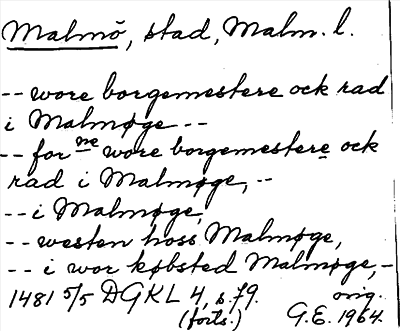 Malmö, stad, Malm. l.
-- wore borgemestere ock rad
i Malmøge --
-- for ne wore borgemestere ock
rad i Malmøge, --
-- i Malmøge,
-- westen hoss Malmøge,
-- i wor købsted Malmøge, -
1481 5/5 DGKL 4, s. 79. orig.
(forts.) G.E. 1964.